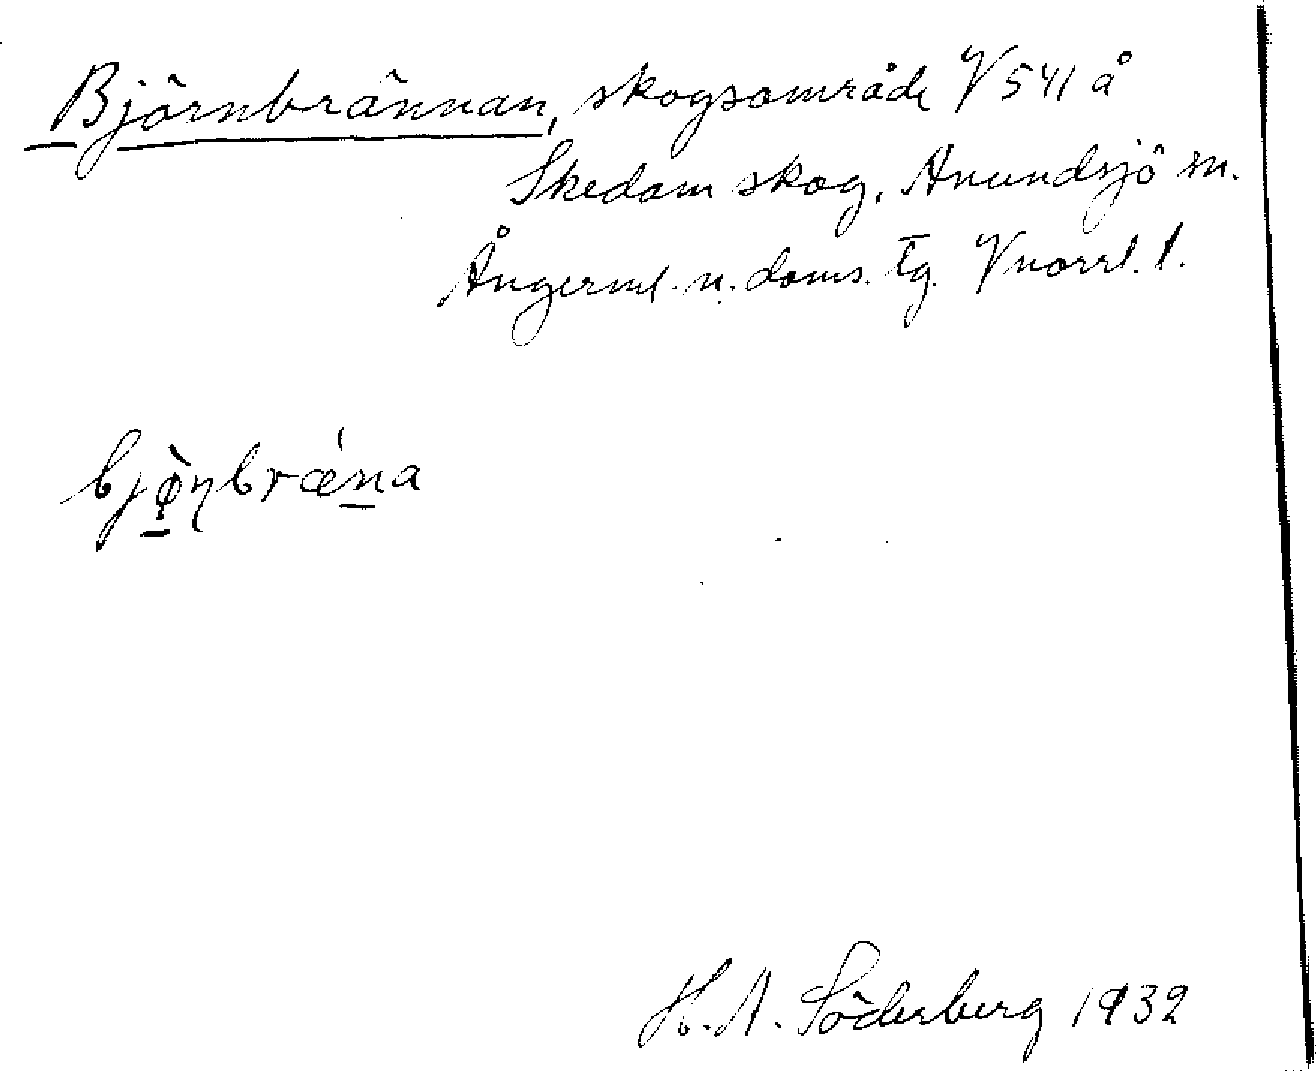 Björnbrännan, skogsområde V 541 å
Skedom skog, Anundsjö sn.
Ångerml. n. doms. tg. Vnorrl. l.
bjö̀ɳbrǽna
H. A. Söderberg 1932